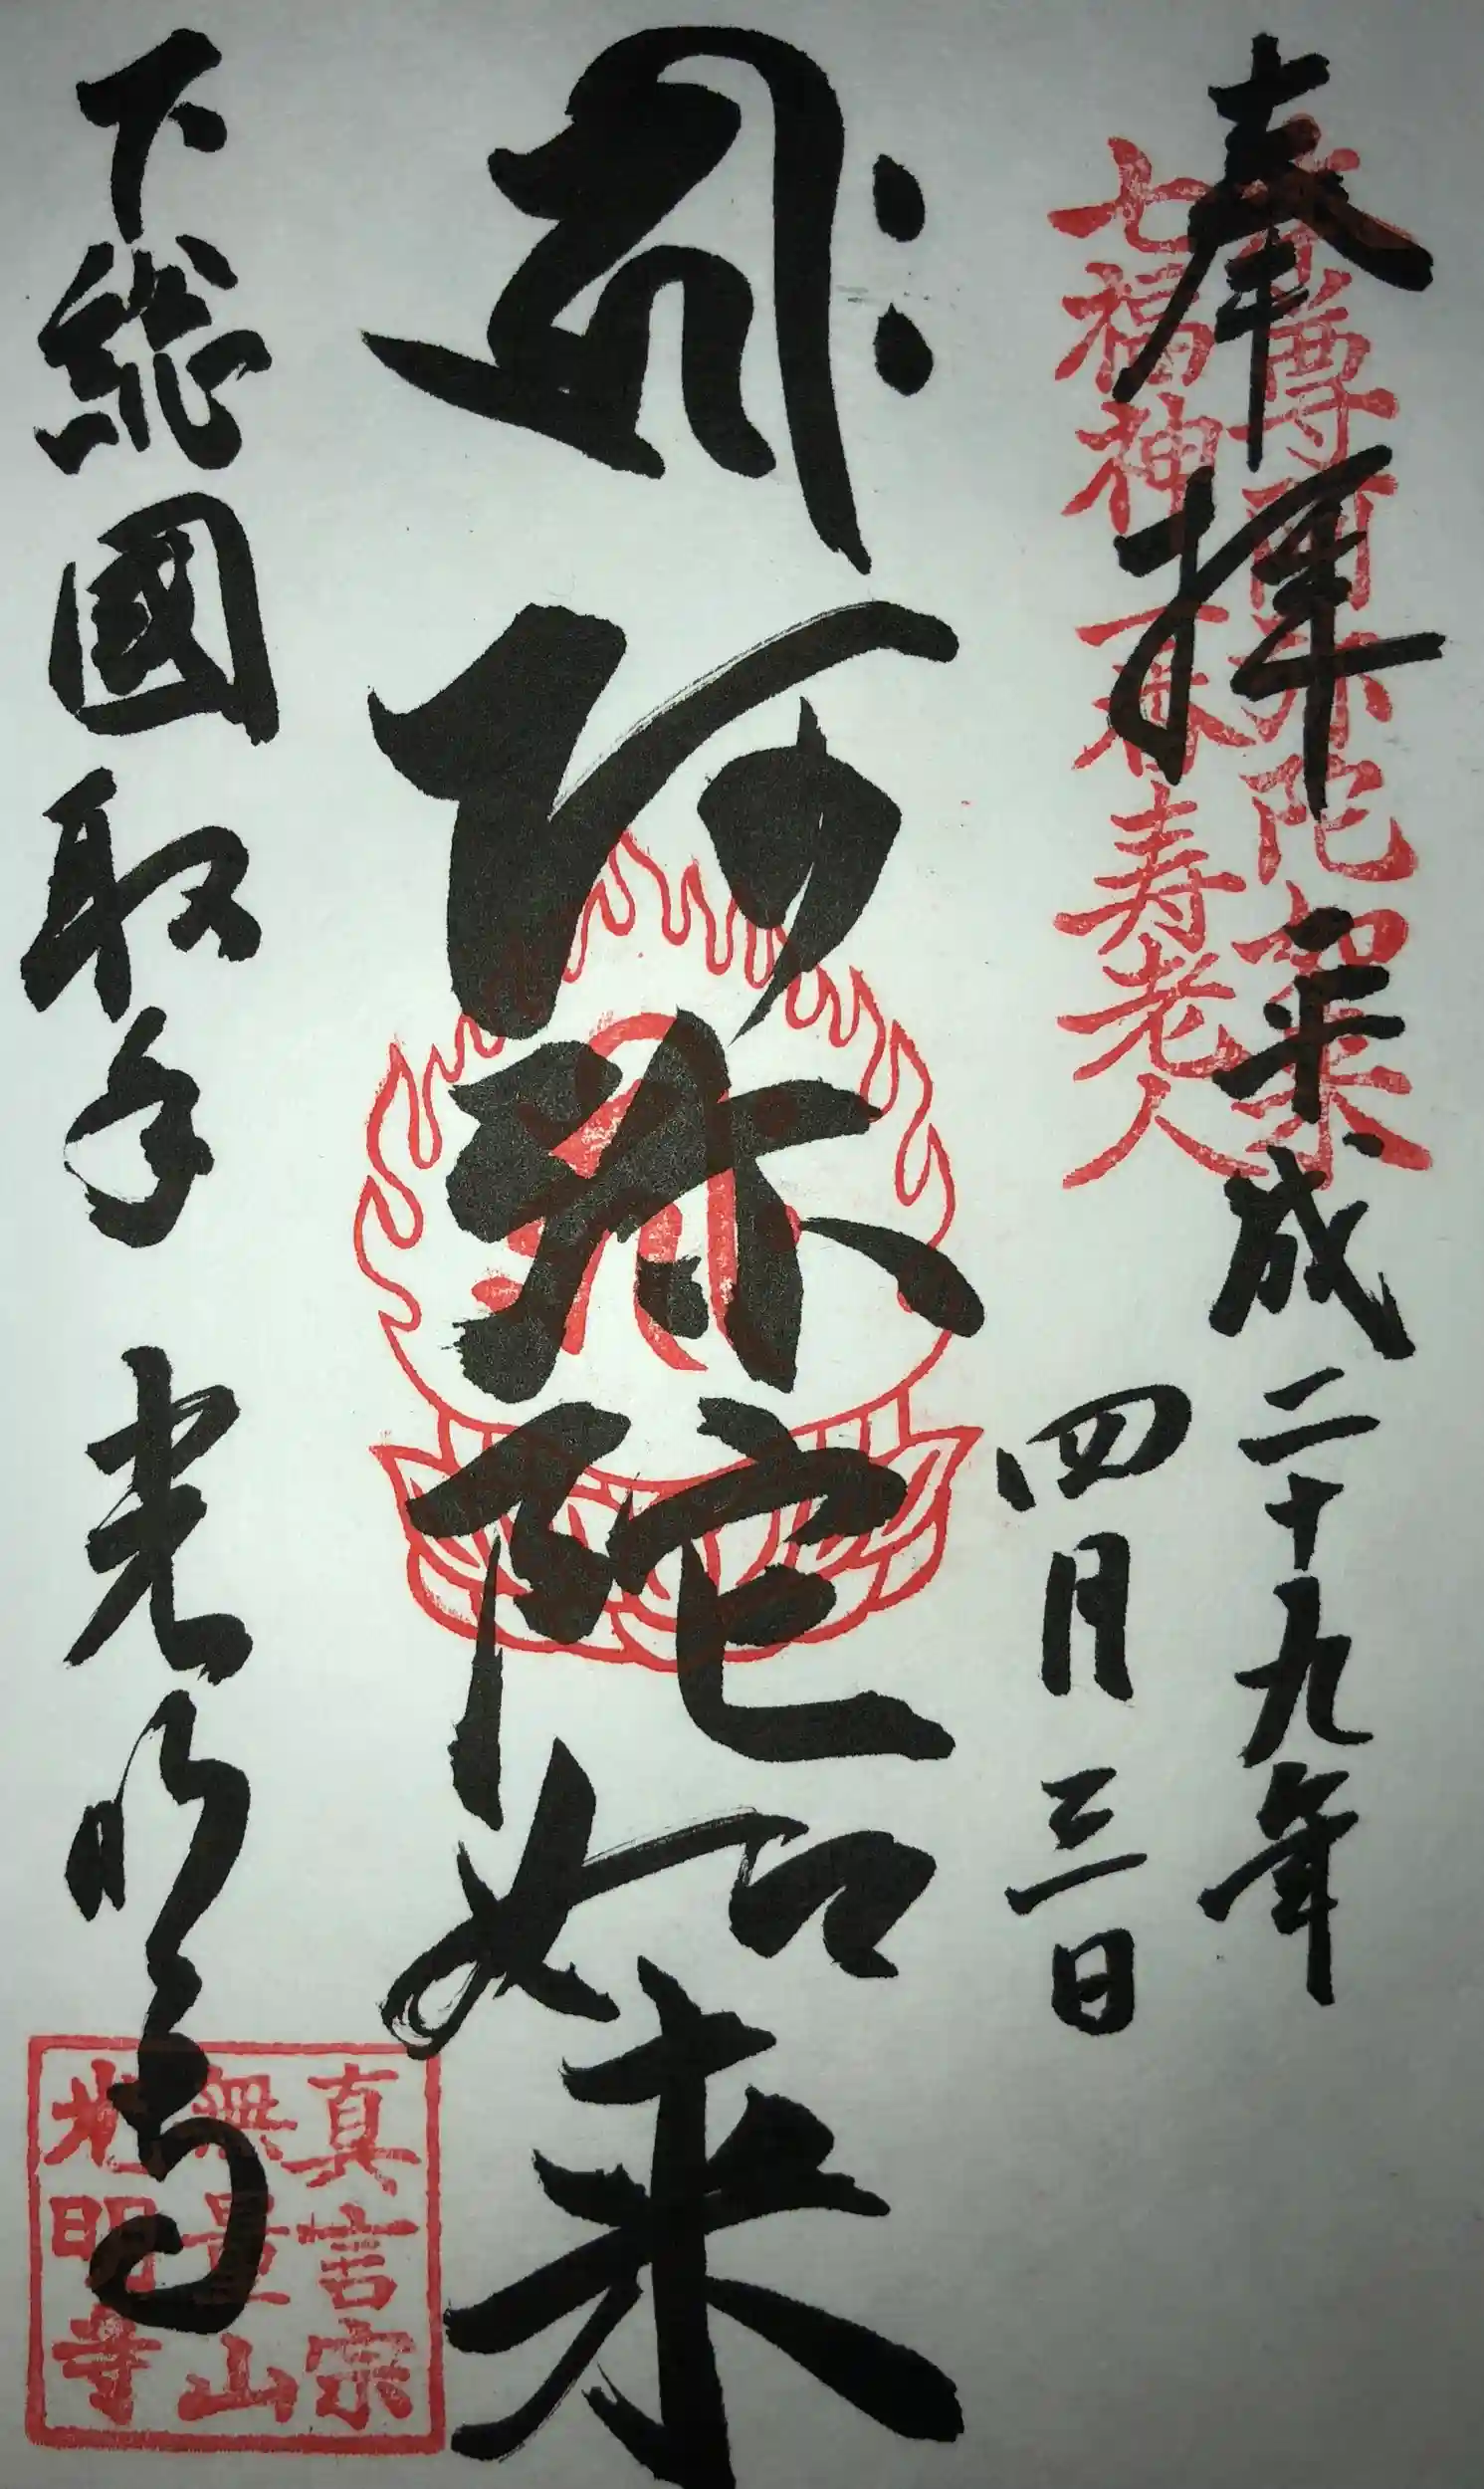 奉拝 平成二十九年
四月三日
本尊阿弥陀如来
七福神 寿老人
阿弥陀如来
下総國取手 光明寺
真言宗
無量山
光明寺